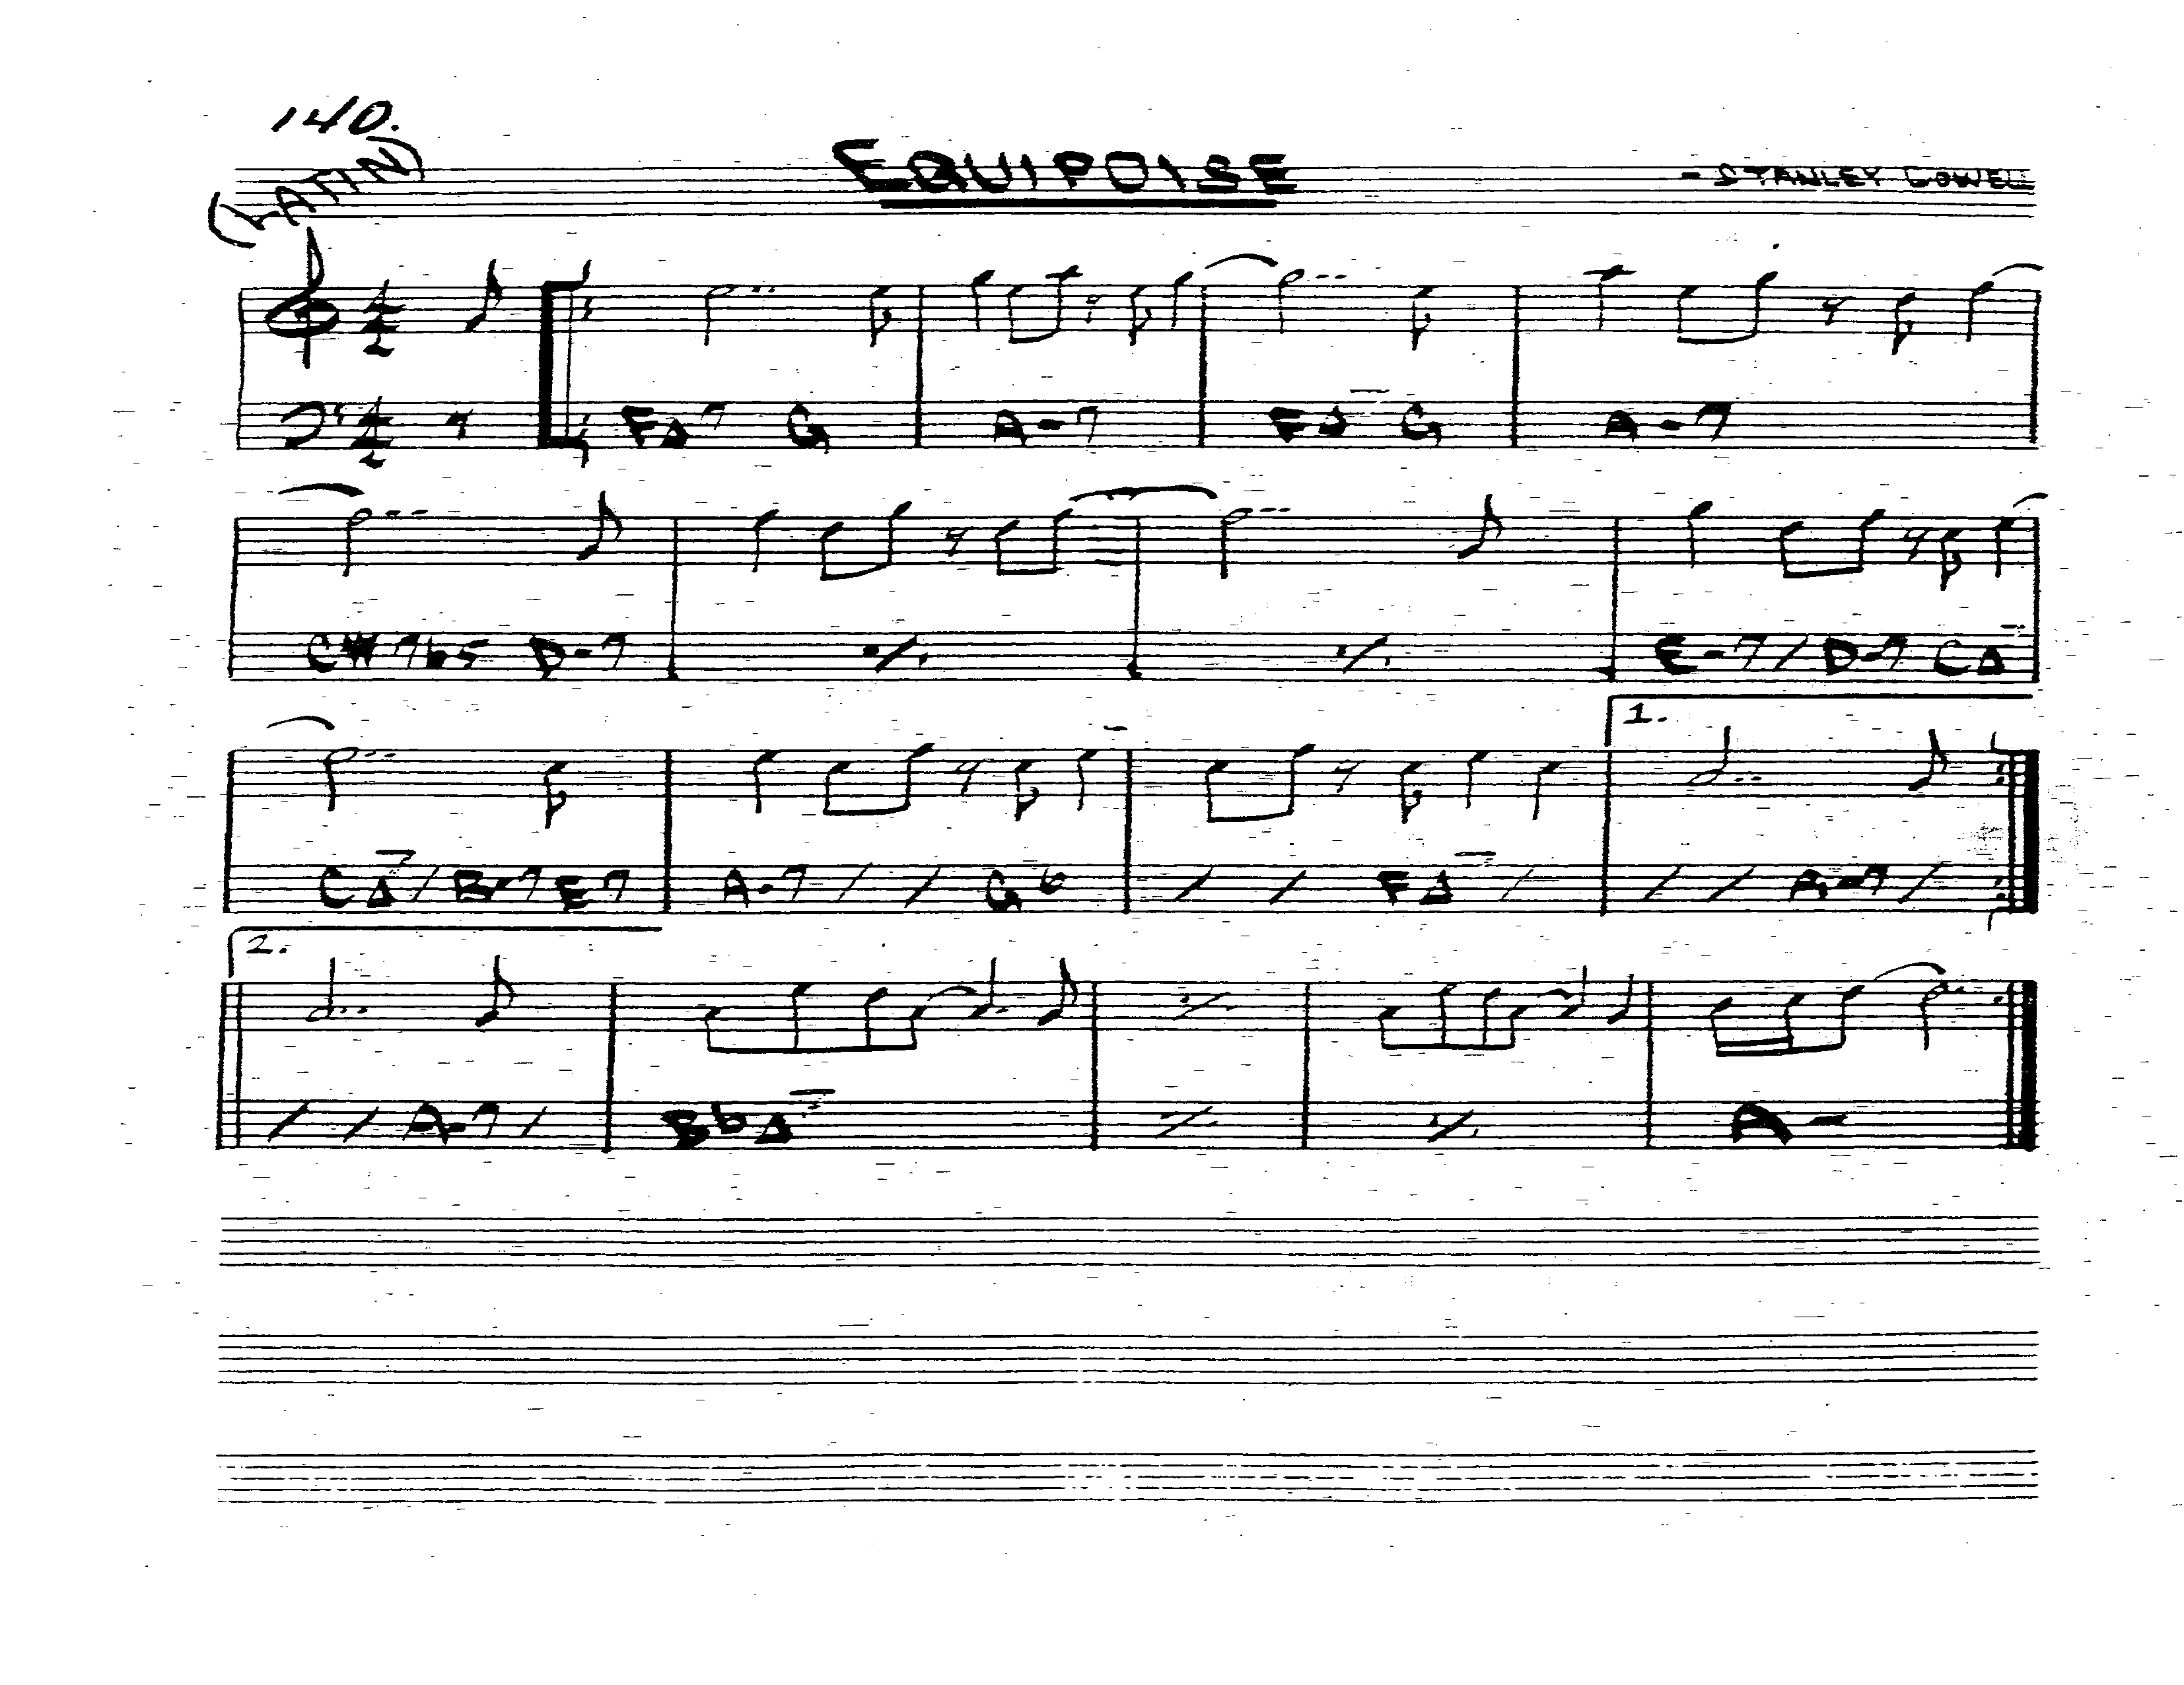 140.
(LATIN)
EQUIPOISE
- STANLEY COWELL
4 4
4 4
F△7 G A-7 F△ G A-7
C#7b5 D-7 ٪ ٪ E-7 / D-7 C△
1.
C△7 / B-7 E7 A-7 / / G6 / / F△ / / / A-7 /
2.
/ / A-7 / Bb△ ٪ ٪ A-